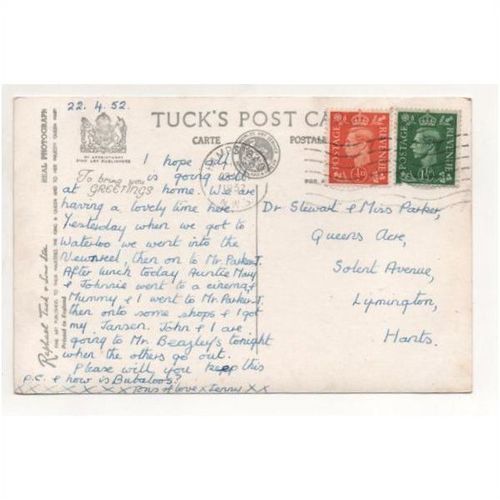 22.4.52.
TUCK'S POST CA
CARTE POSTALE
BY APPOINTMENT
FINE ART PUBLISHERS
REAL PHOTOGRAPH
Raphael Tuck & Sons Ltd
Printed in England
To bring you
GREETINGS
I hope all
is going well
at home. We are
having a lovely time here.
Yesterday when we got to
Waterloo we went into the
Newsreel, then on to Mr. Parker.
After lunch today Auntie Mary
& Johnnie went to a cinema
Mummy & I went to Mr. Parker
then onto some shops & I got
my Jansen. John & I are
going to Mr. Beazley's tonight
when the others go out.
Please will you keep this
p.c. & how is Bubaloos?
Tons of love x
x x
POSTAGE REVENUE
½D
POSTAGE REVENUE
1½D
Dr Stewart & Miss Parker,
Queens Acre,
Solent Avenue,
Lymington,
Hants.